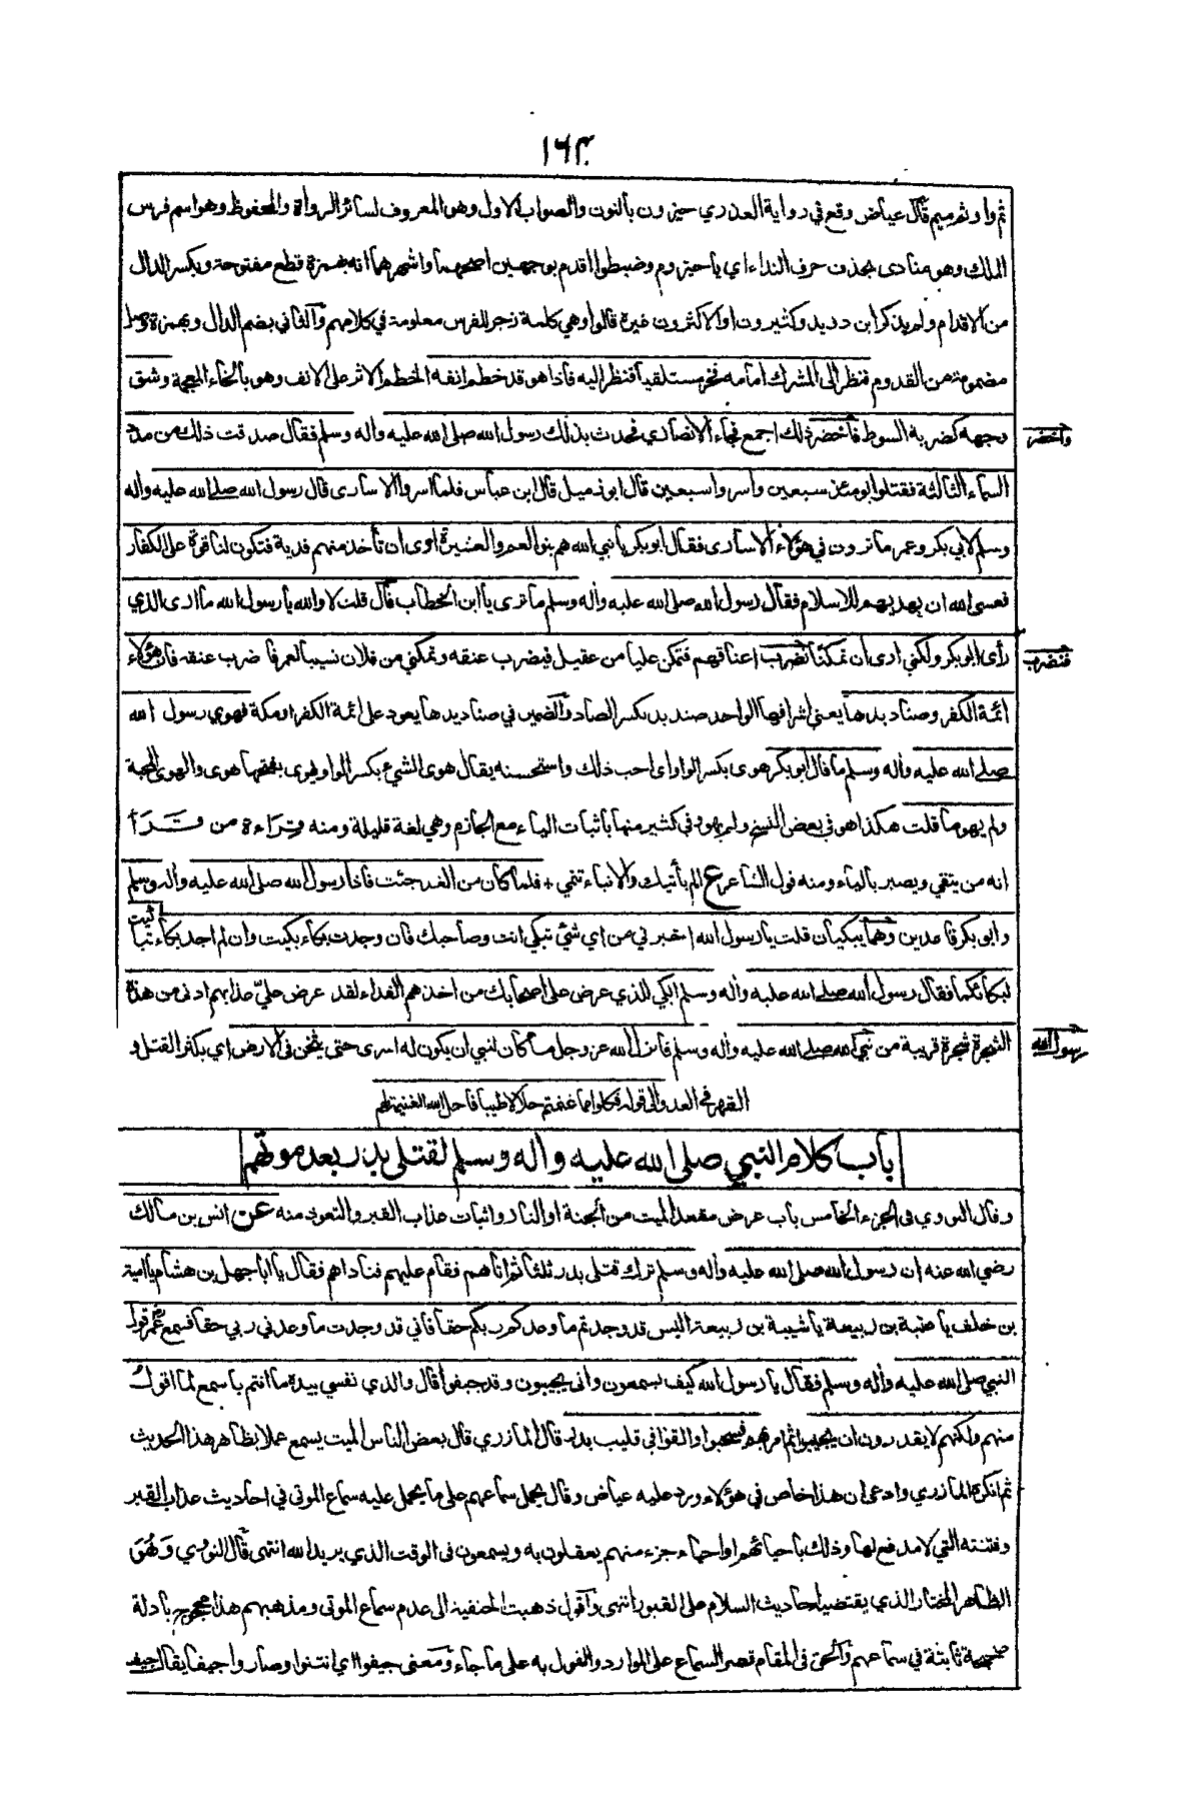 ١٦٣
ثم واو ثم ميم قال عياض وقع في رواية العذري حيزون بالنون والصواب الاول وهو المعروف لسائر الرواة والمحفوظ وهو اسم فرس
الملك وهو منادى بحذف حرف النداء اي يا حيزوم وضبطوا اقدم بوجهين اصحهما واشهرهما انه بهمزة قطع مفتوحة وبكسر الدال
من الاقدام ولم يذكر ابن دريد وكثيرون او الاكثرون غيره قالوا وهي كلمة زجر للفرس معلومة في كلامهم والثاني بضم الدال وبهمزة وصل
مضمومة من القدوم فنظر الى المشرك امامه فخر مستلقيا فنظر اليه فاذا هو قد خطم انفه الخطم الاثر على الانف وهو بالخاء المعجمة وشق
وجهه كضربة السوط فاخضر ذلك اجمع فجاء الانصاري فحدث بذلك رسول الله صلى الله عليه واله وسلم فقال صدقت ذلك من مدد
واخضر
السماء الثالثة فقتلوا يومئذ سبعين واسروا سبعين قال ابو زميل قال ابن عباس فلما اسروا الاسارى قال رسول الله صلى الله عليه واله
وسلم لابي بكر وعمر ما ترون في هؤلاء الاسارى فقال ابو بكر يا نبي الله هم بنو العم والعشيرة ارى ان تأخذ منهم فدية فتكون لنا قوة على الكفار
فعسى الله ان يهديهم للاسلام فقال رسول الله صلى الله عليه واله وسلم ما ترى يا ابن الخطاب قال قلت لا والله يا رسول الله ما ارى الذي
رأى ابو بكر ولكني ارى ان تمكنا نضرب اعناقهم فتمكن عليا من عقيل فيضرب عنقه وتمكني من فلان نسيبا لعمر فا ضرب عنقه فان هؤلاء
فنضرب
ائمة الكفر وصناديدها يعني اشرافها الواحد صنديد بكسر الصاد والضمير في صناديدها يعود على ائمة الكفر او مكة فهوي رسول الله
صلى الله عليه واله وسلم ما قال ابو بكر هوى بكسر الواو اى احب ذلك واستحسنه يقال هوى الشيء بكسر الواو يهوى بفتحها هوى والهوى المحبة
ولم يهو ما قلت هكذا هو في بعض النسخ ولم يهو وفي كثير منها باثبات الياء مع الجازم وهي لغة قليلة ومنه قراءة من قرأ
انه من يتقي ويصبر بالياء ومنه قول الشاعر ع الم يأتيك والانباء تنمي + فلما كان من الغد جئت فاذا رسول الله صلى الله عليه واله وسلم
وابو بكر قاعدين وهما يبكيان قلت يا رسول الله اخبرني من اي شئ تبكي انت وصاحبك فان وجدت بكاء بكيت وان لم اجد بكاء تباكيت
لبكائكما فقال رسول الله صلى الله عليه واله وسلم ابكي للذي عرض على اصحابك من اخذهم الفداء لقد عرض عليّ عذابهم ادنى من هذه
الشجرة شجرة قريبة من نبي الله صلى الله عليه واله وسلم فانزل الله عز وجل ما كان لنبي ان يكون له اسرى حتى يثخن في الارض اي يكثر القتل و
رسول الله
القهر في العدو الى قوله فكلوا مما غنمتم حلالا طيبا فاحل الله الغنيمة لهم
باب كلام النبي صلى الله عليه واله وسلم لقتلى بدر بعد موتهم
وقال النووي في الجزء الخامس باب عرض مقعد الميت من الجنة او النار واثبات عذاب القبر والتعوذ منه عن انس بن مالك
رضي الله عنه ان رسول الله صلى الله عليه واله وسلم ترك قتلى بدر ثلثا ثم اتاهم فقام عليهم فناداهم فقال يا ابا جهل بن هشام يا امية
بن خلف يا عتبة بن ربيعة يا شيبة بن ربيعة اليس قد وجدتم ما وعدكم ربكم حقا فاني قد وجدت ما وعدني ربي حقا فسمع عمر قول
النبي صلى الله عليه واله وسلم فقال يا رسول الله كيف يسمعون وانى يجيبون وقد جيفوا قال والذي نفسي بيده ما انتم باسمع لما اقول
منهم ولكنهم لا يقدرون ان يجيبوا ثم امر بهم فسحبوا والقوا في قليب بدر قال المازري قال بعض الناس الميت يسمع عملا بظاهر هذا الحديث
ثم انكره المازري وادعى ان هذا خاص في هؤلاء ورد عليه عياض وقال يحمل سماعهم على ما يحمل عليه سماع الموتى في احاديث عذاب القبر
وفتنته التي لا مدفع لها وذلك باحيائهم او احياء جزء منهم يعقلون به ويسمعون في الوقت الذي يريد الله انتهى قال النووي وهو
الظاهر المختار الذي يقتضيه احاديث السلام على القبور انتهى واقول ذهبت الحنفية الى عدم سماع الموتى ومذهبهم هذا محجوج بادلة
صحيحة ثابتة في سماعهم والحق في المقام قصر السماع على الوارد والقول به على ما جاء ومعنى جيفوا اي انتنوا وصاروا جيفا يقال جيف